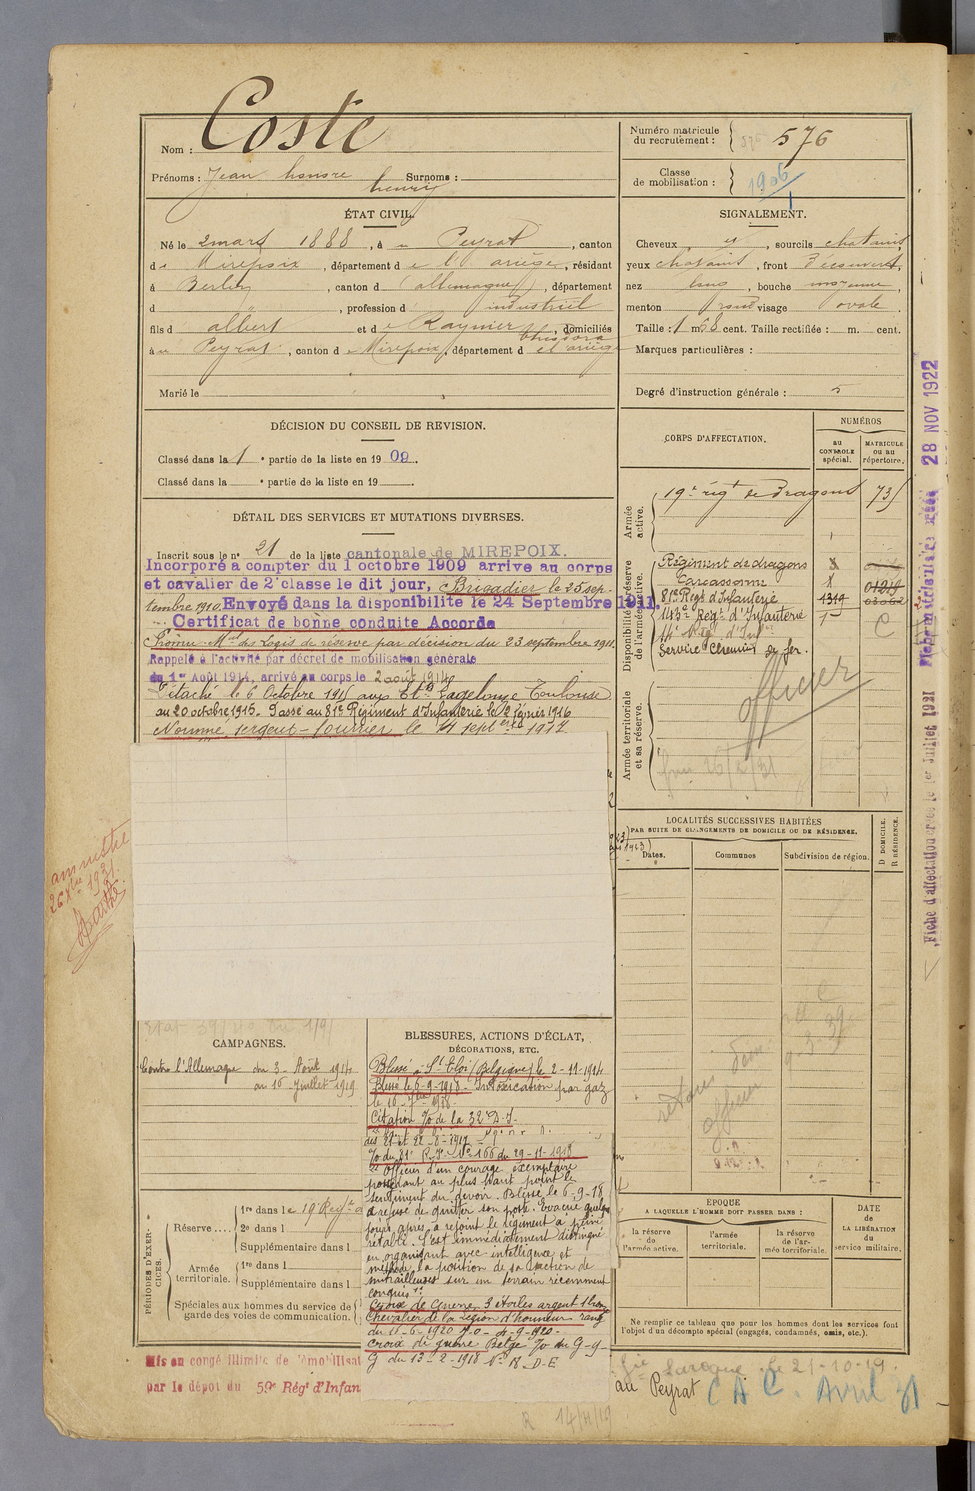 Nom : Coste
Prénoms : Jean honore henry Surnoms :
ÉTAT CIVIL.
Né le 2 mars 1888, à Peyrat, canton
de Mirepoix, département de l'ariège, résidant
à Berlin, canton d (allemagne), département
d , profession d industriel
fils d albert et de Raynier théodora, domiciliés
à Peyrat, canton de Mirepoix, département d el ariège
Marié le
DÉCISION DU CONSEIL DE REVISION.
Classé dans la 1 e partie de la liste en 1909.
Classé dans la e partie de la liste en 19
DÉTAIL DES SERVICES ET MUTATIONS DIVERSES.
Inscrit sous le n° 21 de la liste cantonale de MIREPOIX.
Incorporé à compter du 1 octobre 1909 arrive au corps
et cavalier de 2e classe le dit jour, Brigadier le 25 sep-
tembre 1910. Envoyé dans la disponibilité le 24 Septembre 1911.
Certificat de bonne conduite Accordé
Promu Mal des Logis de réserve par décision du 23 septembre 1911.
Rappelé à l'activité par décret de mobilisation générale
du 1er Août 1914, arrivé au corps le 2 août 1914
Détaché le 6 Octobre 1915 aux Ets Lagelouze Toulouse
au 20 octobre 1915. Passé au 81e Régiment d'Infanterie le 12 février 1916
Nommé sergent-fourrier le 14 septbre 1917
amnistié
26 Xbre 1931.
Etat
CAMPAGNES.
Contre l'Allemagne du 3 Août 1914
au 16 Juillet 1919
PÉRIODES D'EXERCICES.
Réserve....
1re dans le 19 Regt d
2e dans l
Supplémentaire dans l
Armée territoriale.
1re dans l
Supplémentaire dans l
Spéciales aux hommes du service de garde des voies de communication.
Mis en congé illimité de démobilisat
par le dépôt du 59e Régt d'Infan
BLESSURES, ACTIONS D'ÉCLAT,
DÉCORATIONS, ETC.
Blessé à St Eloi (Belgique) le 2-11-1914
Blessé le 6-9-1918 - Intoxication par gaz
le 16-7bre 1918
Citation % de la 32e D.I.
des 21 et 22-8-1917
% du 81e R.I. N° 166 du 29-11-1918
"Officier d'un courage exemplaire
possédant au plus haut point le
sentiment du devoir. Blessé le 6-9-18
a refusé de quitter son poste. Evacué quelques
jours après a rejoint le régiment à peine
rétabli. S'est immédiatement distingué
en organisant avec intelligence et
méthode la position de sa section de
mitrailleuses sur un terrain récemment
conquis".
Croix de Guerre 3 étoiles argent 1 bronze
Chevalier de la Légion d'honneur rang
du 11-6-1920 J.O. 4-9-1920-
Croix de guerre Belge % du G-q-
G du 13-2-1918 N° R. D-E
R 14/11/19
Numéro matricule du recrutement : 576
Classe de mobilisation : 1906
SIGNALEMENT.
Cheveux et, sourcils chatains,
yeux chatains, front découvert,
nez long, bouche moyenne,
menton rond visage ovale.
Taille : 1 m 68 cent. Taille rectifiée : m. cent.
Marques particulières :
Degré d'instruction générale :
CORPS D'AFFECTATION.
NUMÉROS
au CONTROLE spécial.
MATRICULE ou au répertoire.
Armée active.
19e rigt de Dragons 73
Disponibilité et réserve de l'armée active.
Régiment de dragons
Carcassonne
81e Régt d'Infanterie 1319
143e Régt d'Infanterie C
Régt d'Infie
Service Chemins de fer.
Armée territoriale et sa réserve.
officier
LOCALITÉS SUCCESSIVES HABITÉES
PAR SUITE DE CHANGEMENTS DE DOMICILE OU DE RÉSIDENCE.
Dates.
Communes
Subdivision de région.
D DOMICILE.
R RÉSIDENCE.
officier
ÉPOQUE
A LAQUELLE L'HOMME DOIT PASSER DANS :
la réserve de l'armée active.
l'armée territoriale.
la réserve de l'armée territoriale.
DATE de LA LIBÉRATION du service militaire.
Ne remplir ce tableau que pour les hommes dont les services font
l'objet d'un décompte spécial (engagés, condamnés, omis, etc.).
Laroque le 21-10-19.
au Peyrat CAC. Avril 31
Fiche d'affectation créée le 1er Juillet 1921
28 NOV 1922